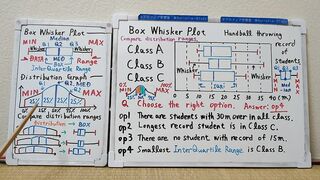 Box Whisker Plot
Median
MIN Q1 Q2 Q3 MAX
Whisker Whisker
DATA MED
Box Range
InterQuartile Range
Distribution Graph
MIN Q1 Q2 Q3 MAX
25% 25% 25% 25%
Compare distribution ranges
distribution → BOX
Box Whisker Plot Handball throwing
Compare distribution ranges. record of students
Class A
Class B
Class C
Whisker Whisker
MIN MAX
0 5 10 15 20 25 30 35 40 (m)
Q. Choose the right option. Answer: op4
op1 There are students with 30m over in all class.
op2 Longest record student is in Class C.
op3 There are no students with record of 15m.
op4 Smallest InterQuartile Range is Class B.